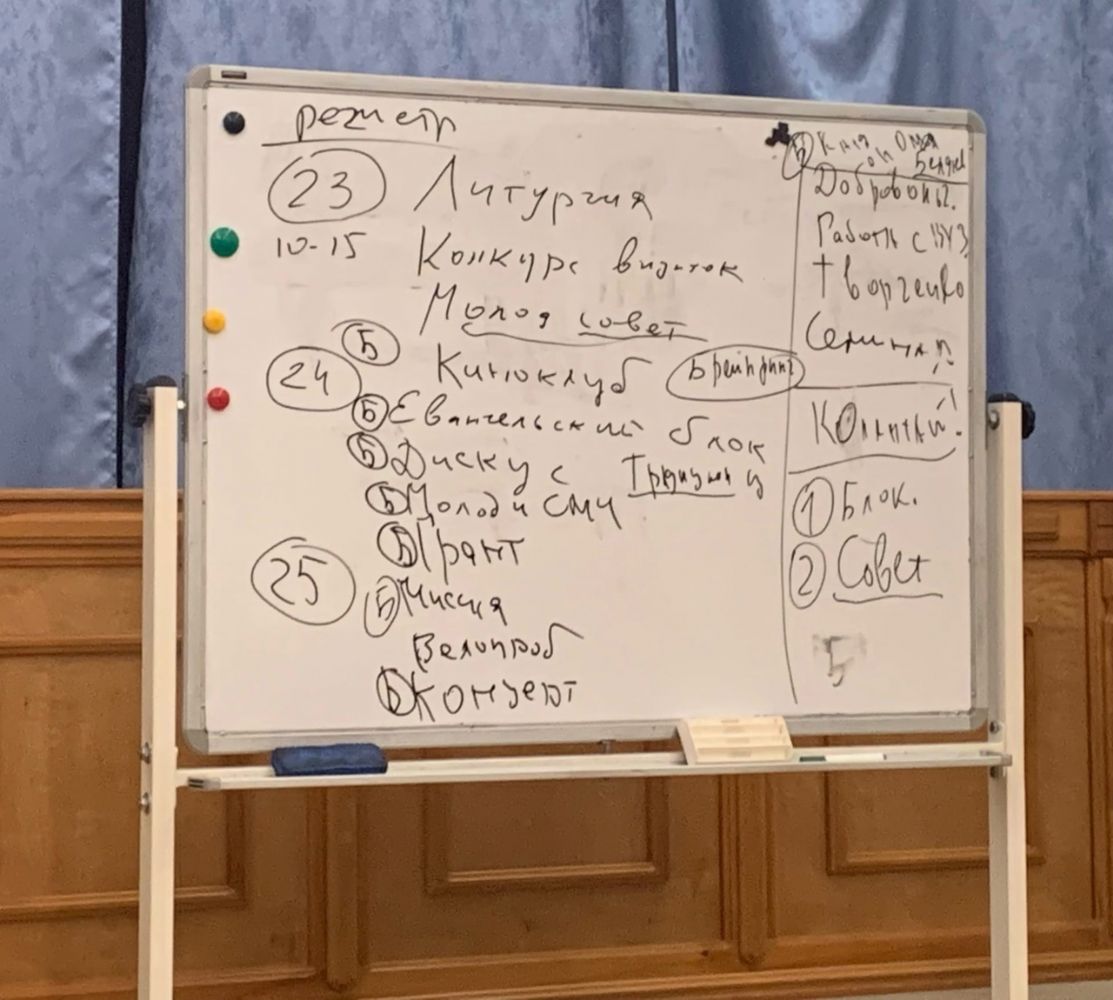 регистр
23 Литургия
10-15 Конкурс визиток
Молод совет
Б
24 Киноклуб Брейнринг
Б Евангельский блок
Б Диску с
Б Молод и СМИ
Б Грант
25
Б Миссия
Велопроб
Б Концерт
Б
Доброволь.
Работа с ВУЗ
Творческо
Семинар
1 Блок.
2 Совет
Б